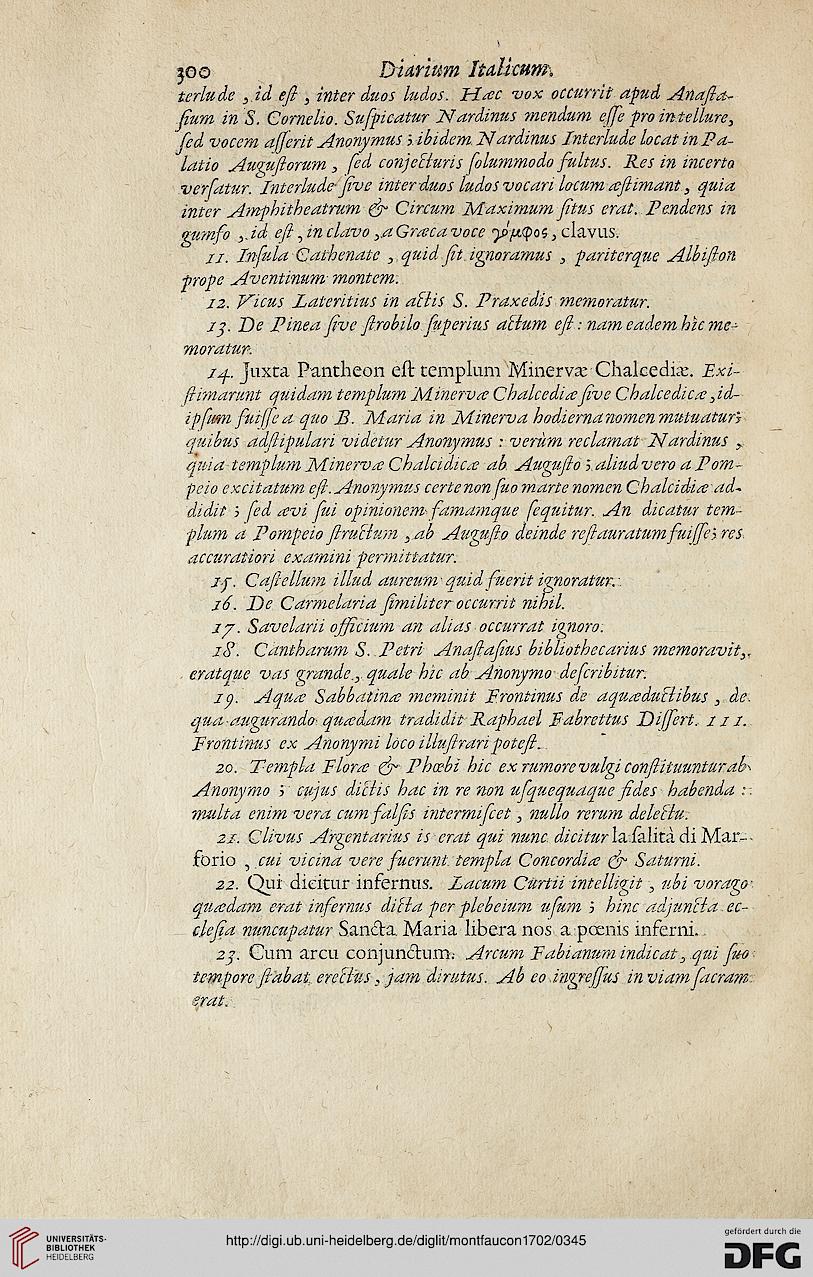 300 Diarium Italicum.
terlude , id eſt , inter duos ludos. Hæc vox occurrit apud Anaſta-
ſium in S. Cornelio. Suſpicatur Nardinus mendum eſſe pro in tellure,
ſed vocem aſſerit Anonymus ; ibidem Nardinus Interlude locat in Pa-
latio Auguſtorum , ſed conjecturis ſolummodo fultus. Res in incerto
verſatur. Interlude ſive inter duos ludos vocari locum æſtimant , quia
inter Amphitheatrum & Circum Maximum ſitus erat. Pendens in
gumfo , id eſt , in clavo , a Græca voce γόμφος, clavus.
11. Inſula Cathenate , quid ſit ignoramus , pariterque Albiſton
prope Aventinum montem.
12. Vicus Lateritius in actis S. Praxedis memoratur.
13. De Pinea ſive ſtrobilo ſuperius actum eſt : nam eadem hìc me-
moratur.
14. Juxta Pantheon eſt templum Minervæ Chalcediæ. Exi-
ſtimarunt quidam templum Minervæ Chalcediæ ſive Chalcedicæ , id-
ipſum fuiſſe a quo B. Maria in Minerva hodierna nomen mutuatur ;
quibus adſtipulari videtur Anonymus : verùm reclamat Nardinus ,
quia templum Minervæ Chalcidicæ ab Auguſto ; aliud vero a Pom-
peio excitatum eſt. Anonymus certe non ſuo marte nomen Chalcidiæ ad-
didit ; ſed ævi ſui opinionem famamque ſequitur. An dicatur tem-
plum a Pompeio ſtructum , ab Auguſto deinde reſtauratum fuiſſe ; res
accuratiori examini permittatur.
15. Caſtellum illud aureum quid fuerit ignoratur.
16. De Carmelaria ſimiliter occurrit nihil.
17. Savelarii officium an alias occurrat ignoro.
18. Cantharum S. Petri Anaſtaſius bibliothecarius memoravit ,
eratque vas grande , quale hic ab Anonymo deſcribitur.
19. Aquæ Sabbatinæ meminit Frontinus de aquæductibus , de
qua augurando quædam tradidit Raphael Fabrettus Diſſert. III.
Frontinus ex Anonymi loco illuſtrari poteſt.
20. Templa Floræ & Phœbi hic ex rumore vulgi conſtituuntur ab
Anonymo ; cujus dictis hac in re non uſquequaque fides habenda :
multa enim vera cum falſis intermiſcet , nullo rerum delectu.
21. Clivus Argentarius is erat qui nunc dicitur la ſalità di Mar-
forio , cui vicina vere fuerunt templa Concordiæ & Saturni.
22. Qui dicitur infernus. Lacum Curtii intelligit , ubi vorago
quædam erat infernus dicta per plebeium uſum ; hinc adjuncta ec-
cleſia nuncupatur Sancta Maria libera nos a pœnis inferni.
23. Cum arcu conjunctum. Arcum Fabianum indicat , qui ſuo
tempore ſtabat erectus , jam dirutus. Ab eo ingreſſus in viam ſacram
erat.
UNIVERSITÄTS-
BIBLIOTHEK
HEIDELBERG
http://digi.ub.uni-heidelberg.de/diglit/montfaucon1702/0345
gefördert durch die
DFG